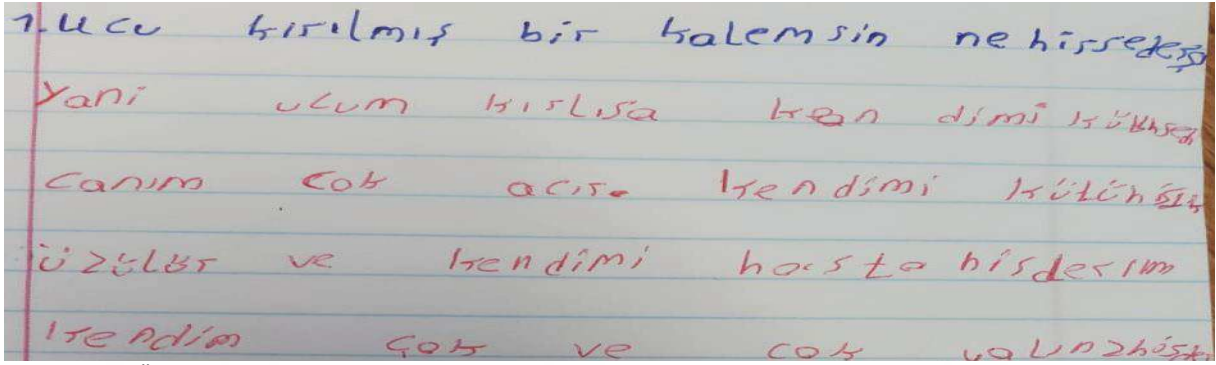 1. Ucu kırılmış bir kalemsin ne hissedersin
Yani ucum kırlısa kendimi kötü hised
canım cok acır. kendimi kötü his
üzülür ve kendimi hasta hisderim
kendim çok ve cok yalınz